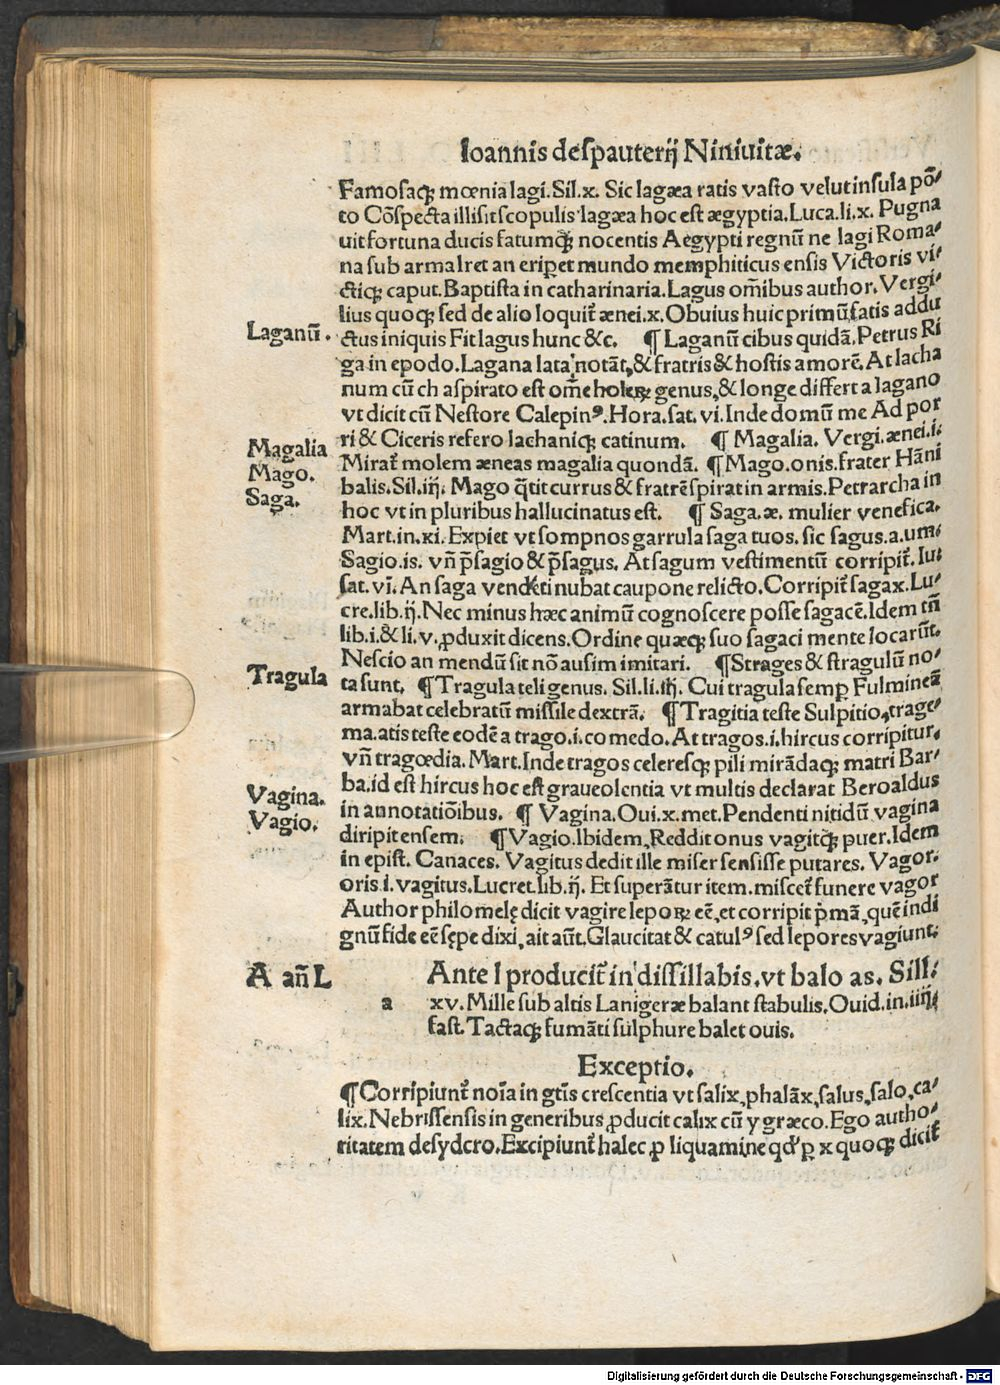 Ioannis despauterij Niniuitæ.
Famosaqꝫ mœnia lagi. Sil.x. Sic lagæa ratis vasto velut insula põ-
to Cõspecta illisit scopulis lagæa hoc est ægyptia. Luca.li.x. Pugna
uit fortuna ducis fatumqꝫ nocentis Aegypti regnũ ne lagi Roma-
na sub arma Iret an eriperet mundo memphiticus ensis Victoris vi-
ctiqꝫ caput. Baptista in catharinaria. Lagus om̃ibus author. Vergi-
lius quoqꝫ sed de alio loquit̃ ænei.x. Obuius huic primũ fatis addu
Laganũ. ctus iniquis Fit lagus hunc &c. ¶ Laganũ cibus quidã. Petrus Ri
ga in epodo. Lagana lata notãt, & fratris & hostis amorẽ. At lacha
num cũ ch aspirato est om̃e holeꝝ genus, & longe differt a lagano
vt dicit cũ Nestore Calepinꝰ. Hora. sat. vi. Inde domũ me Ad por
Magalia ri & Ciceris refero lachaniqꝫ catinum. ¶ Magalia. Vergi. ænei.i.
Mago. Mirat̃ molem æneas magalia quondã. ¶ Mago.onis. frater Hãni
Saga. balis. Sil.iiij. Mago q̃tit currus & fratrẽ spirat in armis. Petrarcha in
hoc vt in pluribus hallucinatus est. ¶ Saga.æ. mulier venefica.
Mart.in.xi. Expiet vt sompnos garrula saga tuos. sic sagus.a.um.
Sagio.is. vñ p̃sagio & p̃sagus. At sagum vestimentũ corripit̃. Iu.
sat. vi. An saga vendẽti nubat caupone relicto. Corripit̃ sagax. Lu-
cre.lib.ij. Nec minus hæc animũ cognoscere posse sagacẽ. Idem tñ
lib.i. & li.v. ꝓduxit dicens. Ordine quæqꝫ suo sagaci mente locarũt.
Nescio an mendũ sit nõ ausim imitari. ¶ Strages & stragulũ no-
Tragula ta sunt. ¶ Tragula teli genus. Sil.li.iij. Cui tragula semꝑ Fulmineã
armabat celebratũ missile dextrã. ¶ Tragitia teste Sulpitio, trage-
ma.atis teste eodẽ a trago.i.comedo. At tragos.i.hircus corripitur.
vñ tragœdia. Mart. Inde tragos celeresqꝫ pili mirãdaqꝫ matri Bar-
ba.id est hircus hoc est graueolentia vt multis declarat Beroaldus
Vagina. in annotatiõibus. ¶ Vagina. Oui.x.met. Pendenti nitidũ vagina
Vagio. diripit ensem. ¶ Vagio. Ibidem, Reddit onus vagitqꝫ puer. Idem
in epist. Canaces. Vagitus dedit ille miser sensisse putares. Vagor.
oris.i.vagitus. Lucret.lib.ij. Et superãtur item. miscet̃ funere vagor
Author philomelę dicit vagire lepoꝝ eẽ, et corripit p̃mã, quẽ indi
gnũ fide eẽ sępe dixi, ait aũt. Glaucitat & catulꝰ sed lepores vagiunt.
A añ L Ante l producit̃ in dissillabis. vt balo as. Sill.
a xv. Mille sub altis Lanigeræ balant stabulis. Ouid.in.iiij.
fast. Tactaqꝫ fumãti sulphure balet ouis.
Exceptio.
¶ Corripiunt̃ noĩa in gtĩs crescentia vt salix, phalãx, salus, salo, ca-
lix. Nebrissensis in generibus ꝓducit calix cũ y græco. Ego autho-
ritatem desydero. Excipiunt̃ halec ꝓ liquamine qđ ꝑ x quoqꝫ dicit̃
Digitalisierung gefördert durch die Deutsche Forschungsgemeinschaft - DFG